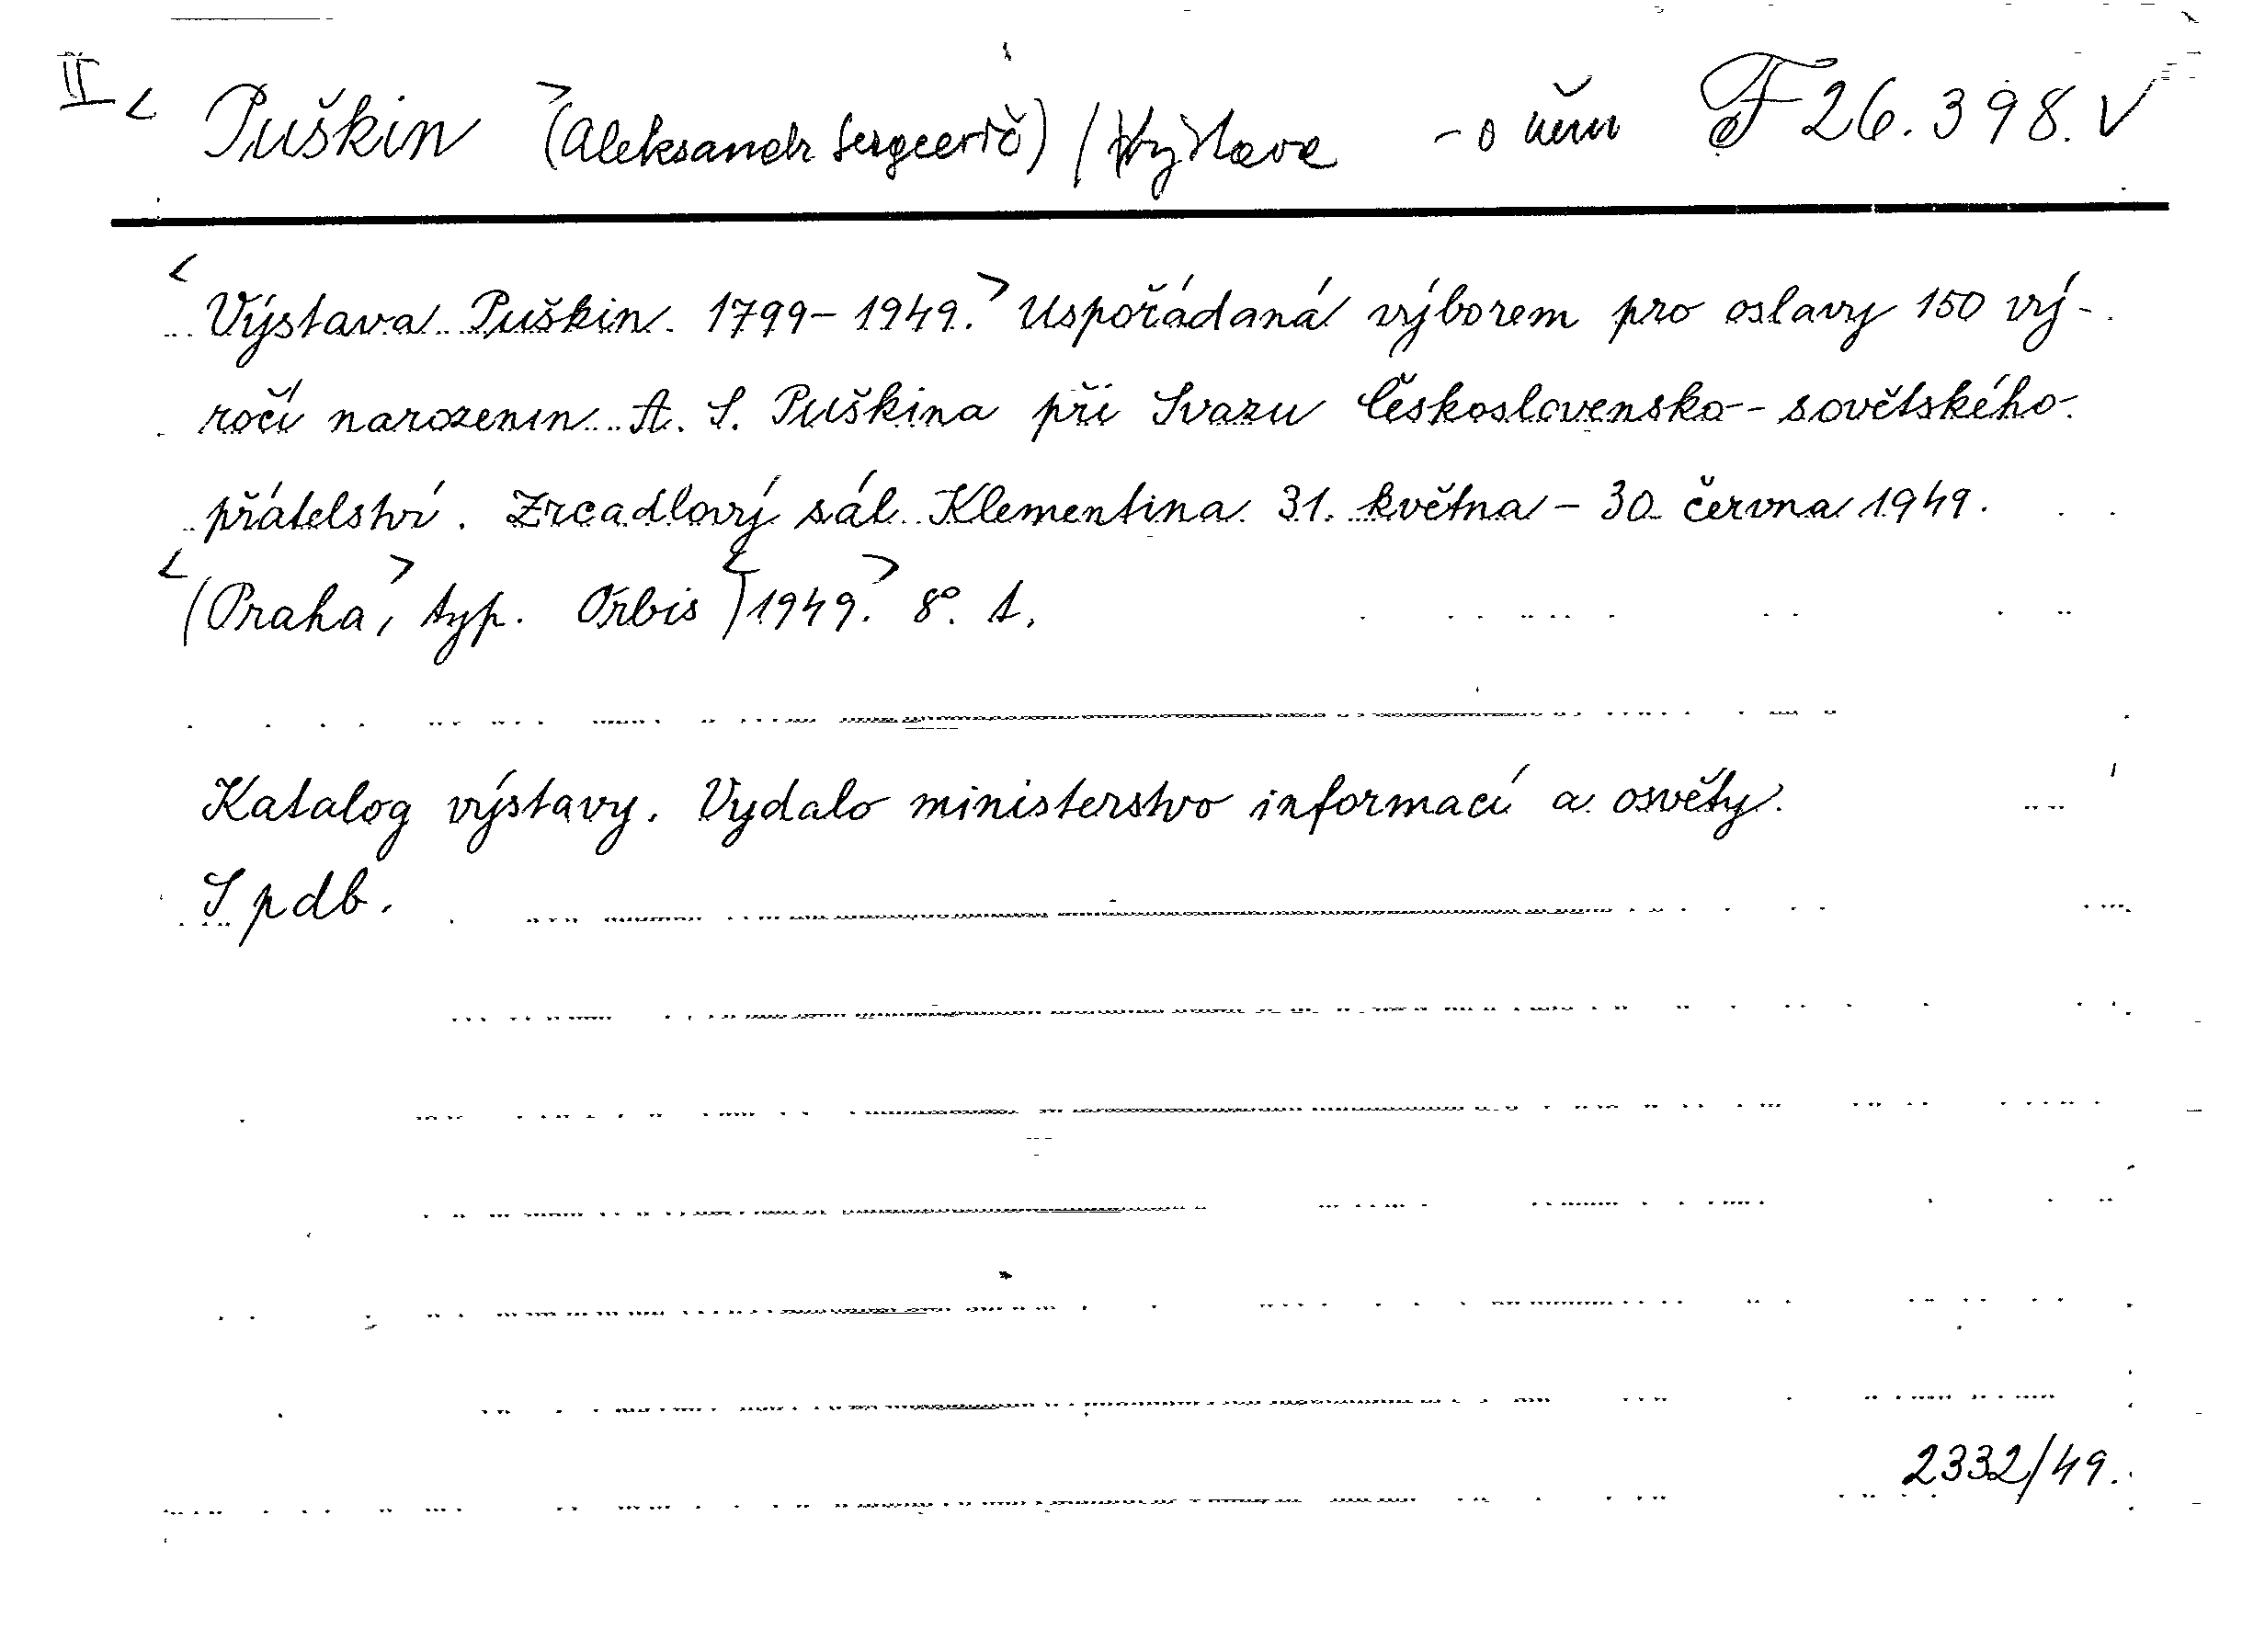 II < Puškin > (Aleksandr Sergeevič) / Výstava - o něm F 26.398. V
< Výstava Puškin. 1799-1949. > Uspořádaná výborem pro oslavy 150 vý-
ročí narozenin A. S. Puškina při Svazu Československo-sovětského
přátelství. Zrcadlový sál Klementina 31. května - 30. června 1949.
< (Praha, > typ. Orbis) < 1949. > 8°. A.
Katalog výstavy. Vydalo ministerstvo informací a osvěty.
S pdb.
2332/49.